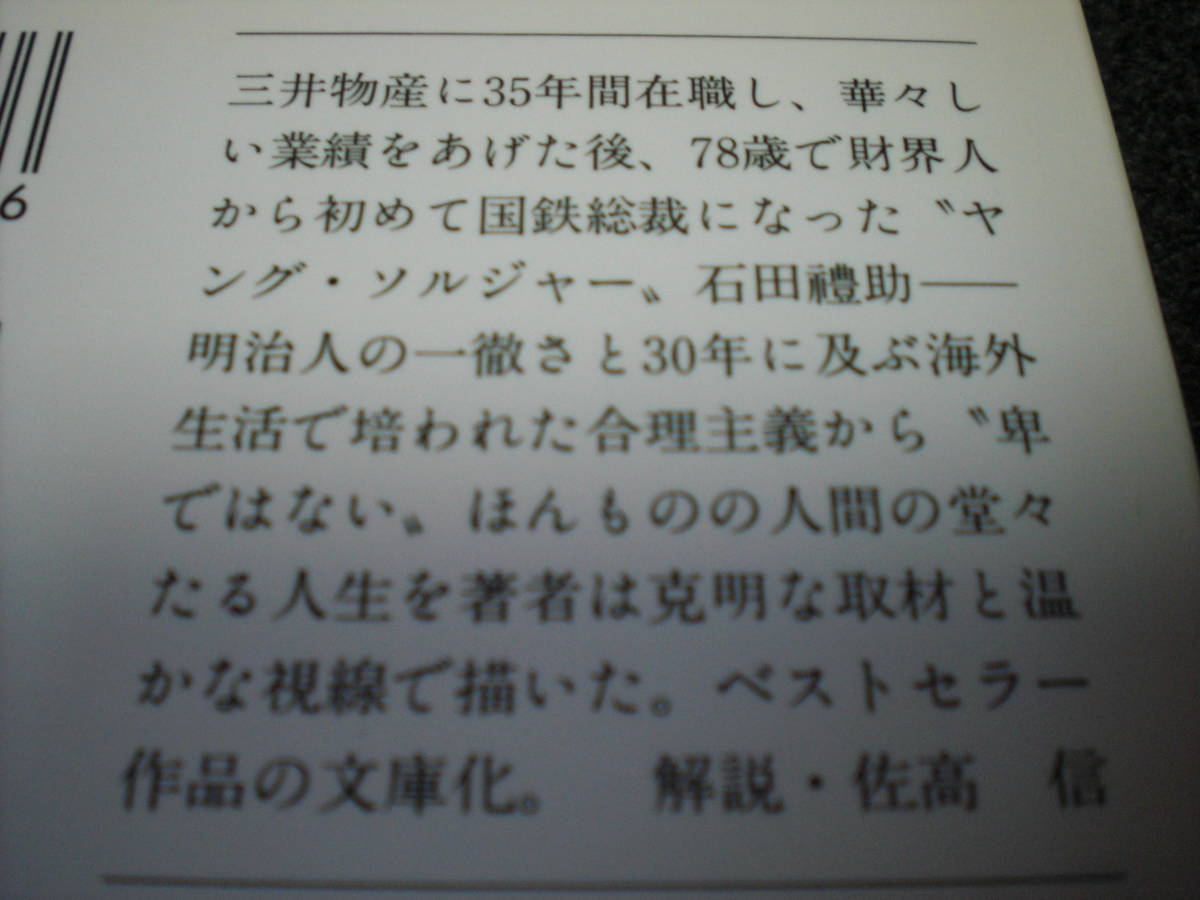 三井物産に35年間在職し、華々し
い業績をあげた後、78歳で財界人
から初めて国鉄総裁になった〝ヤ
ング・ソルジャー〟石田禮助――
明治人の一徹さと30年に及ぶ海外
生活で培われた合理主義から〝卑
ではない〟ほんものの人間の堂々
たる人生を著者は克明な取材と温
かな視線で描いた。ベストセラー
作品の文庫化。　解説・佐高　信
6